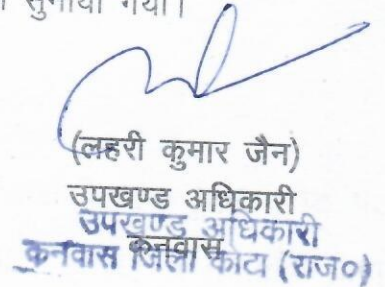 सुनाया गया।
(लहरी कुमार जैन)
उपखण्ड अधिकारी
उपखण्ड अधिकारी
कनवास
कनवास जिला कोटा (राज०)